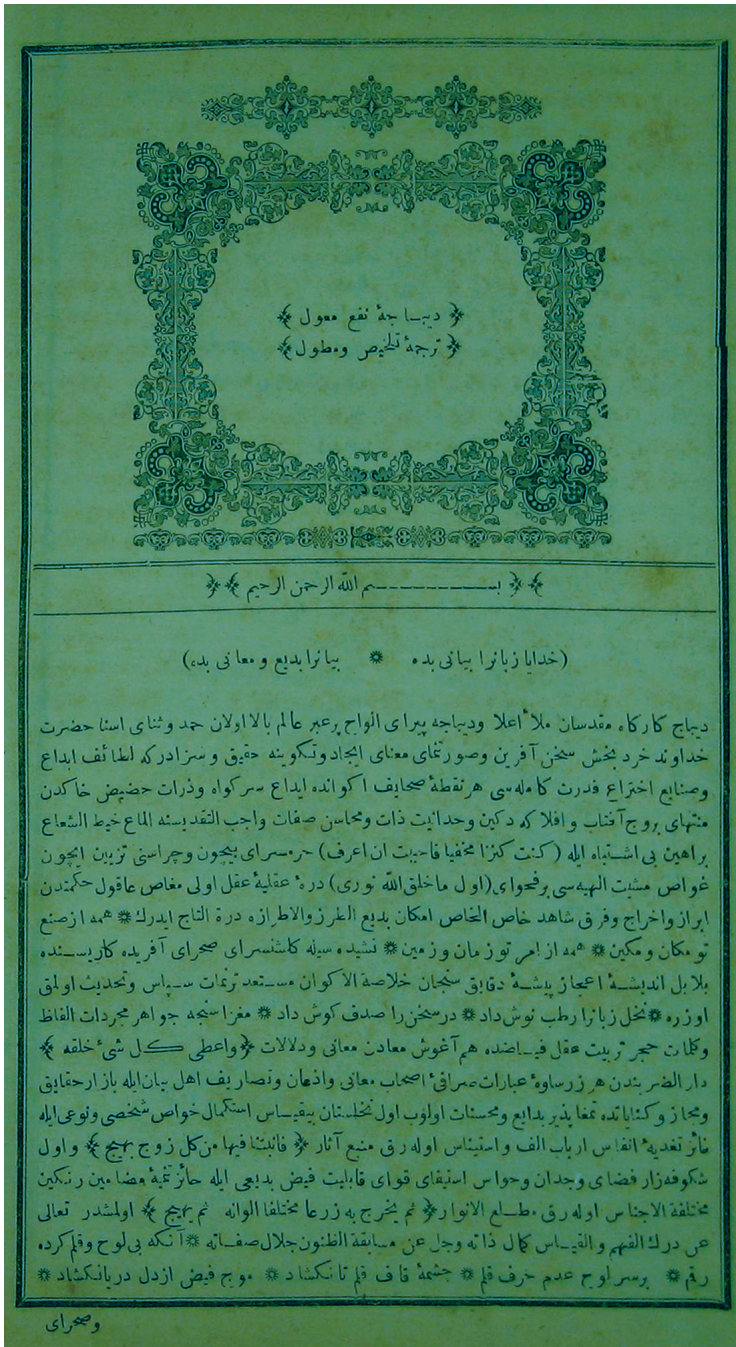 ﴿ ديباجهٔ نفع معول ﴾
﴿ ترجمهٔ تلخيص ومطول ﴾
﴿ بسم الله الرحمن الرحيم ﴾
(خدايا زبانرا بيانى بده ❋ بيانرا بديع ومعانى بده)
ديباج كاركاه مقدسان ملأ اعلا وديباجه پيراى الواح برعبر عالم بالا اولان حمد وثناى اسنا حضرت
خداوند خرد بخش سخن آفرين وصورتنماى معناى ايجاد وتكوينه حقيق وسزادركه لطائف ابداع
وصنايع اختراع قدرت كامله سى هر نقطهٔ صحايف اكوانده ايداع سركواه وذرات حضيض خاكدن
منتهاى بروج آفتاب وافلاكه دكين وحدانيت ذات ومحاسن صفات واجب التقديسنه الماع خيط الشعاع
براهين بى اشتباه ايله (كنت كنزا مخفيا فاحببت ان اعرف) حرمسراى بيچون وچراسنى تزيين ايچون
غواص مشيت الهيه سى برفحواى (اول ما خلق الله نورى) درهٔ عقليهٔ عقل اولى مغاص عاقول حكمتدن
ابراز واخراج وفرق شاهد خاص الخاص امكان بديع الطرز والاطرازه درة التاج ايدرك ❋ همه از صنع
تو مكان ومكين ❋ همه از امر تو زمان وزمين ❋ نشيده سيله كاشنسراى صحراى آفريده كار يسنده
بلابل انديشهٔ اعجاز پيشهٔ دقايق سنجان خلاصة الاكوان مستعد ترنمات سپاس وتحديث اولمق
اوزره ❋ نخل زبانرا رطب نوش داد ❋ در سخن را صدف كوش داد ❋ مغزا سنجه جواهر مجردات الفاظ
وكلمات حجر تربيت عقل فياضده هم آغوش معادن معانى ودلالات ﴿ واعطى كل شئ خلقه ﴾
دار الضربندن هر زرساوهٔ عبارات صرافئ اصحاب معانى واذهان وتصاريف اهل بيان ايله بازار حقايق
ومجاز وكناياتده تمغا پذير بدايع ومحسنات اولوب اول نخلستان بيقياس استكمال خواص شخصى ونوعى ايله
فائز تغديهٔ انفاس ارباب الف واستيناس اوله رق منبع آثار ﴿ فانبتنا فيها من كل زوج بهيج ﴾ واول
شكوفه زار فضاى وجدان وحواس استيفاى قواى قابليت فيض بديعى ايله حائز تنميهٔ مضامين رنكين
مختلفة الاجناس اوله رق مطلع الانوار ﴿ ثم يخرج به زرعا مختلفا الوانه ثم يهيج ﴾ اولمشدر تعالى
عن درك الفهم والقياس كمال ذاته وجل عن مسابقة الظنون جلال صفاته ❋ آنكه بى لوح وقلم كرده
رقم ❋ برسر لوح عدم حرف قلم ❋ چشمهٔ قاف قلم تا نكشاد ❋ موج فيض از دل دريا نكشاد ❋
وصحراى